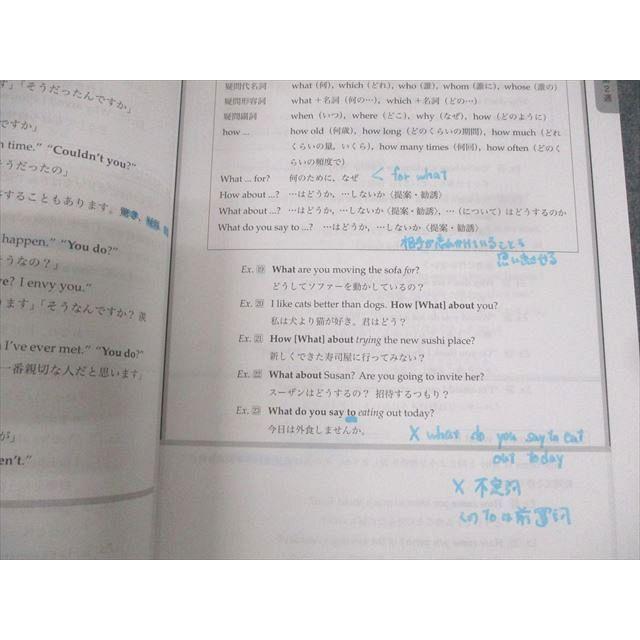 す」「そうだったんですか」
ですか」
n time.” “Couldn't you?”
そうだったの」
することもあります。驚き、
happen.” “You do?”
うなの？」
e? I envy you.”
ます」「そうなんですか？ 羨
I've ever met.” “You do?”
一番親切な人だと思います」
が」
en't.”
第2週
疑問代名詞 what (何), which (どれ), who (誰), whom (誰に), whose (誰の)
疑問形容詞 what＋名詞 (何の…), which＋名詞 (どの…)
疑問副詞 when (いつ), where (どこ), why (なぜ), how (どのように)
how ... how old (何歳), how long (どのくらいの期間), how much (どれ
くらいの量, いくら), how many times (何回), how often (どのく
らいの頻度で)
What ... for? 何のために, なぜ < for what
How about ...? …はどうか, …しないか〈提案・勧誘〉
What about ...? …はどうか, …しないか〈提案・勧誘〉, …(について)はどうするのか
What do you say to ...? …はどうか, …しないか〈提案・勧誘〉
相手が忘れかけていることを
思い出させる
Ex. ⑲ What are you moving the sofa for?
どうしてソファーを動かしているの？
Ex. ⑳ I like cats better than dogs. How [What] about you?
私は犬より猫が好き。君はどう？
Ex. ㉑ How [What] about trying the new sushi place?
新しくできた寿司屋に行ってみない？
Ex. ㉒ What about Susan? Are you going to invite her?
スーザンはどうするの？ 招待するつもり？
Ex. ㉓ What do you say to eating out today?
今日は外食しませんか。
× what do you say to eat
out today
× 不定詞
このtoは前置詞